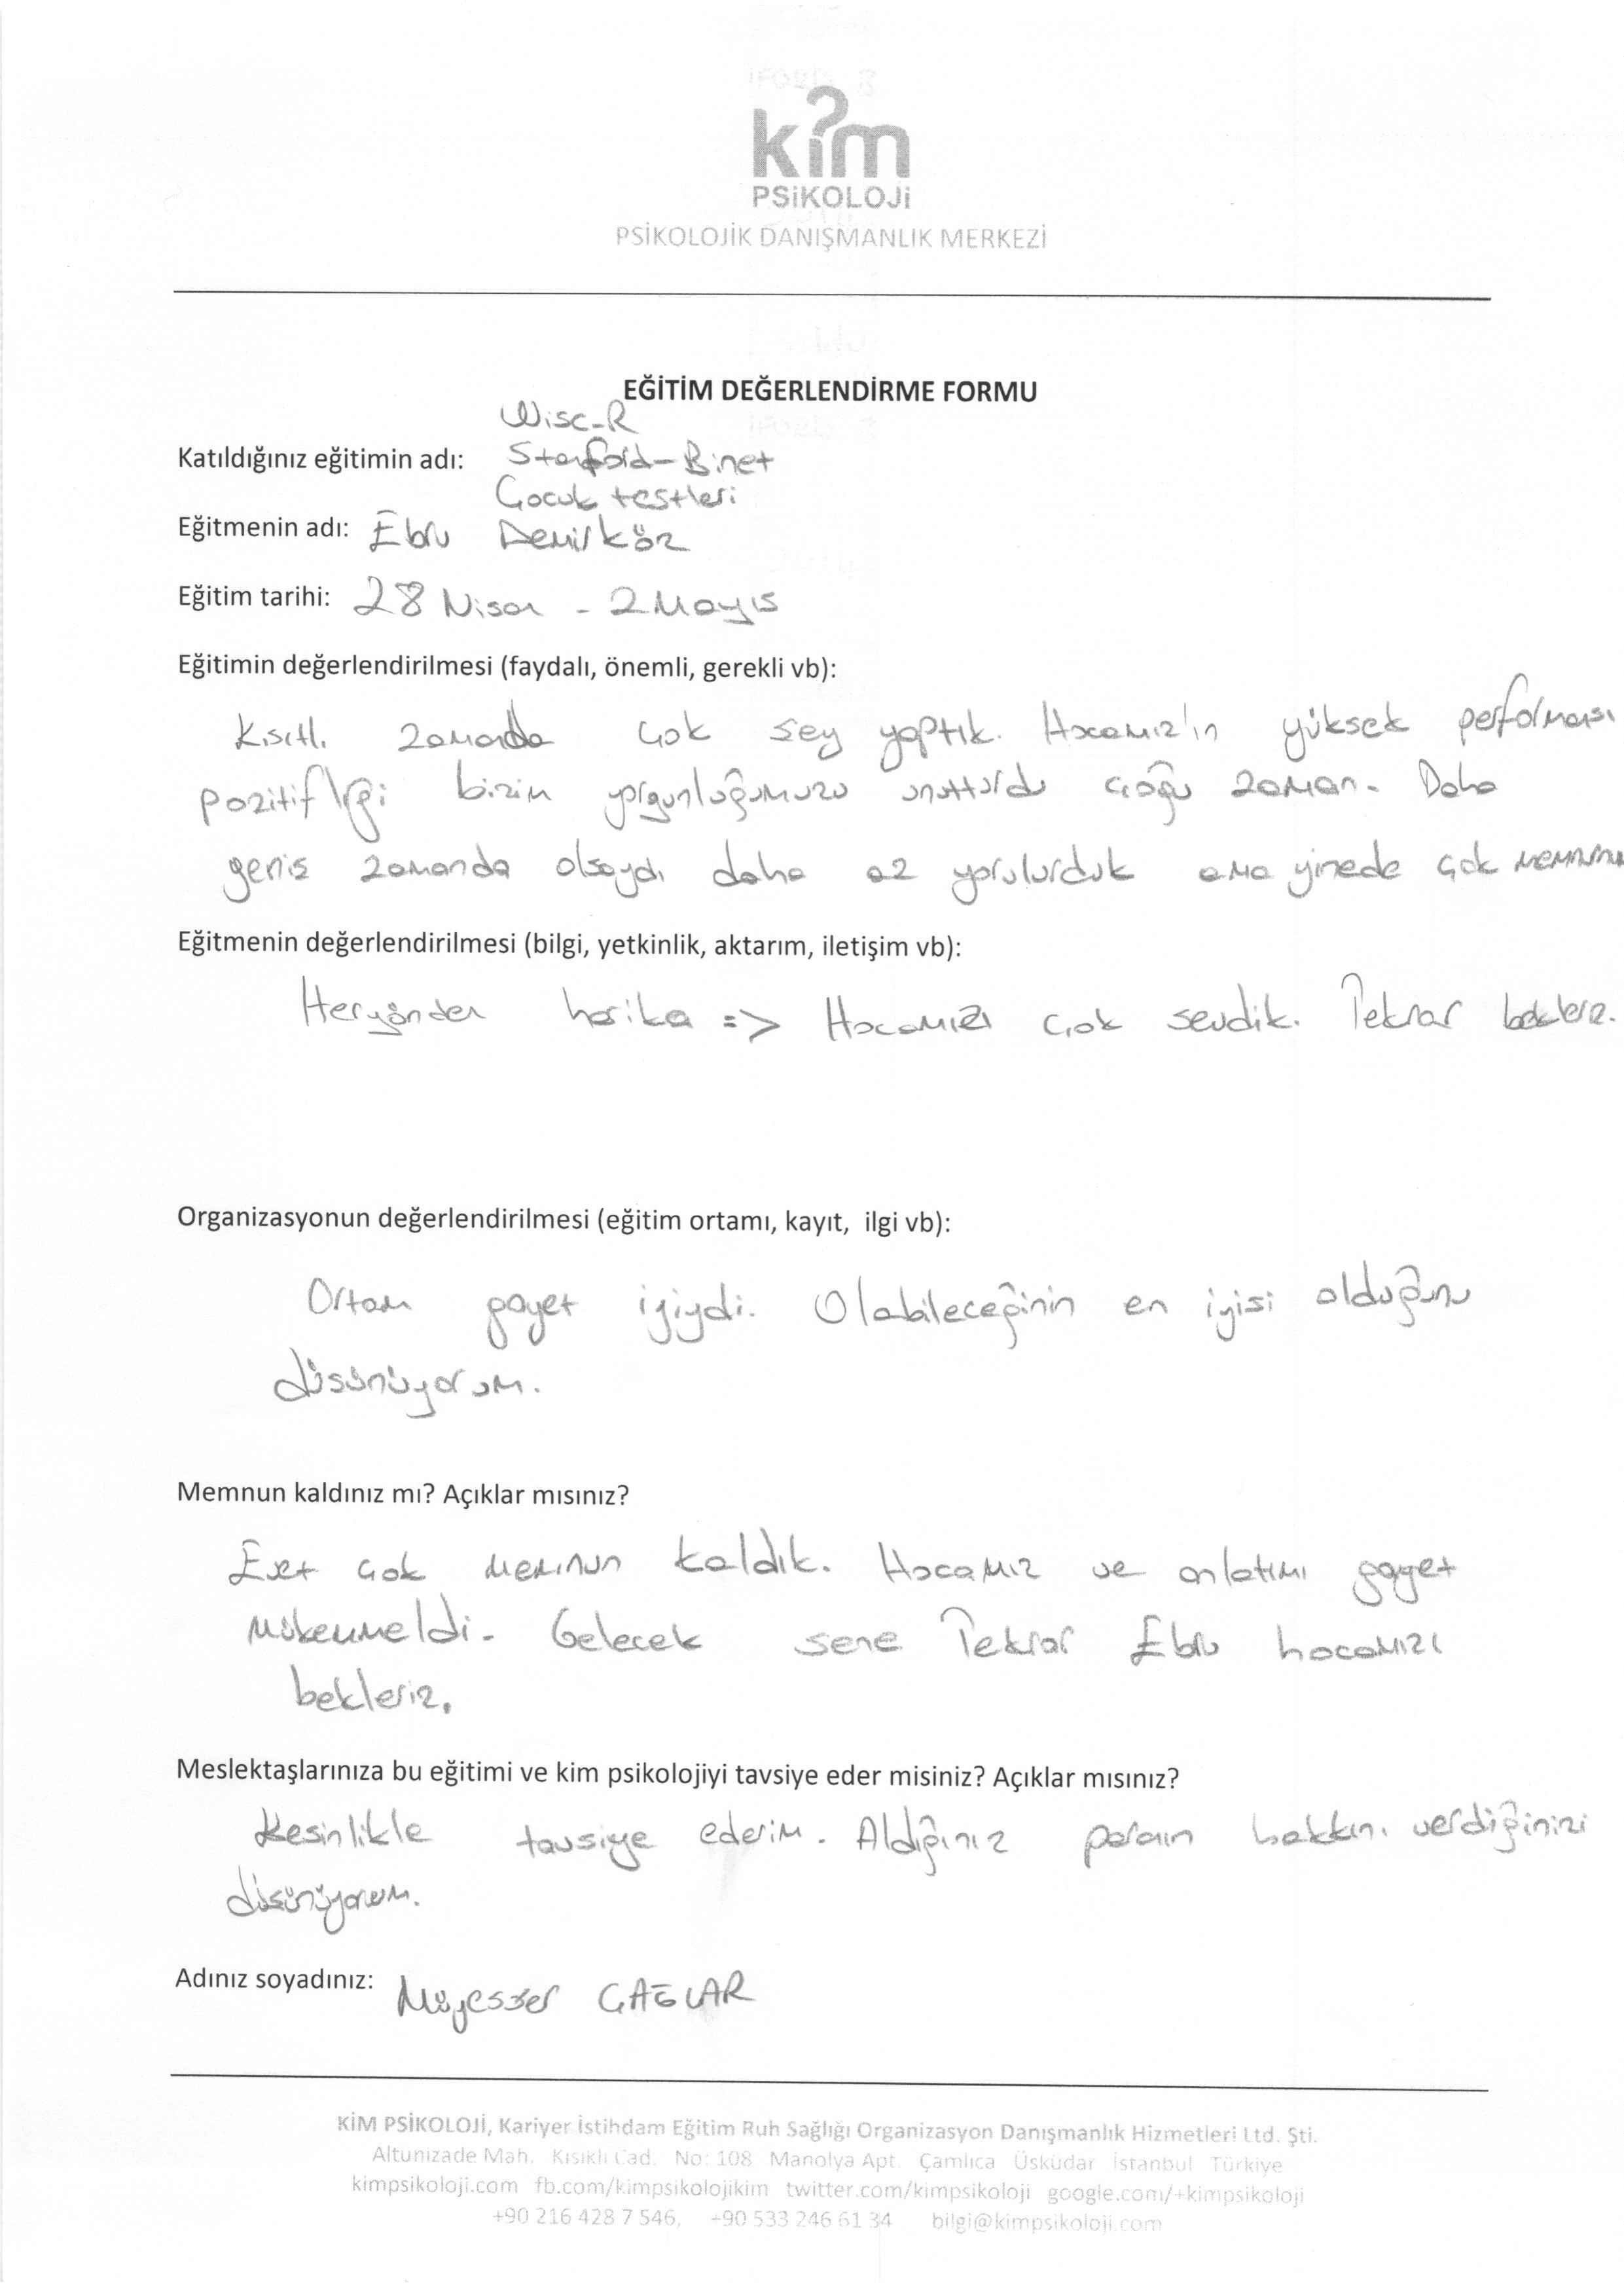 kim
PSiKOLOJi
PSİKOLOJİK DANIŞMANLIK MERKEZİ
EĞİTİM DEĞERLENDİRME FORMU
Wisc-R
Katıldığınız eğitimin adı: Stanford-Binet
Çocuk testleri
Eğitmenin adı: Ebru Demirköz
Eğitim tarihi: 28 Nisan - 2 Mayıs
Eğitimin değerlendirilmesi (faydalı, önemli, gerekli vb):
Kısıtlı zamanda çok şey yaptık. Hocamız'ın yüksek performansı
pozitifliği bizim yorgunluğumuzu unutturdu çoğu zaman. Daha
geniş zamanda olsaydı daha az yorulurduk ama yinede çok memnunu
Eğitmenin değerlendirilmesi (bilgi, yetkinlik, aktarım, iletişim vb):
Heryönden harika => Hocamızı çok sevdik. Tekrar bekleriz.
Organizasyonun değerlendirilmesi (eğitim ortamı, kayıt, ilgi vb):
Ortam gayet iyiydi. Olabileceğinin en iyisi olduğunu
düşünüyorum.
Memnun kaldınız mı? Açıklar mısınız?
Evet çok memnun kaldık. Hocamız ve anlatımı gayet
mükemmeldi. Gelecek sene Tekrar Ebru hocamızı
bekleriz.
Meslektaşlarınıza bu eğitimi ve kim psikolojiyi tavsiye eder misiniz? Açıklar mısınız?
Kesinlikle tavsiye ederim. Aldığınız paranın hakkını verdiğinizi
düşünüyorum.
Adınız soyadınız: Müyesser ÇAĞLAR
KİM PSİKOLOJİ, Kariyer İstihdam Eğitim Ruh Sağlığı Organizasyon Danışmanlık Hizmetleri Ltd. Şti.
Altunizade Mah. Kısıklı Cad. No: 108 Manolya Apt. Çamlıca Üsküdar İstanbul Türkiye
kimpsikoloji.com fb.com/kimpsikolojikim twitter.com/kimpsikoloji google.com/+kimpsikoloji
+90 216 428 7 546, +90 533 246 61 34 bilgi@kimpsikoloji.com